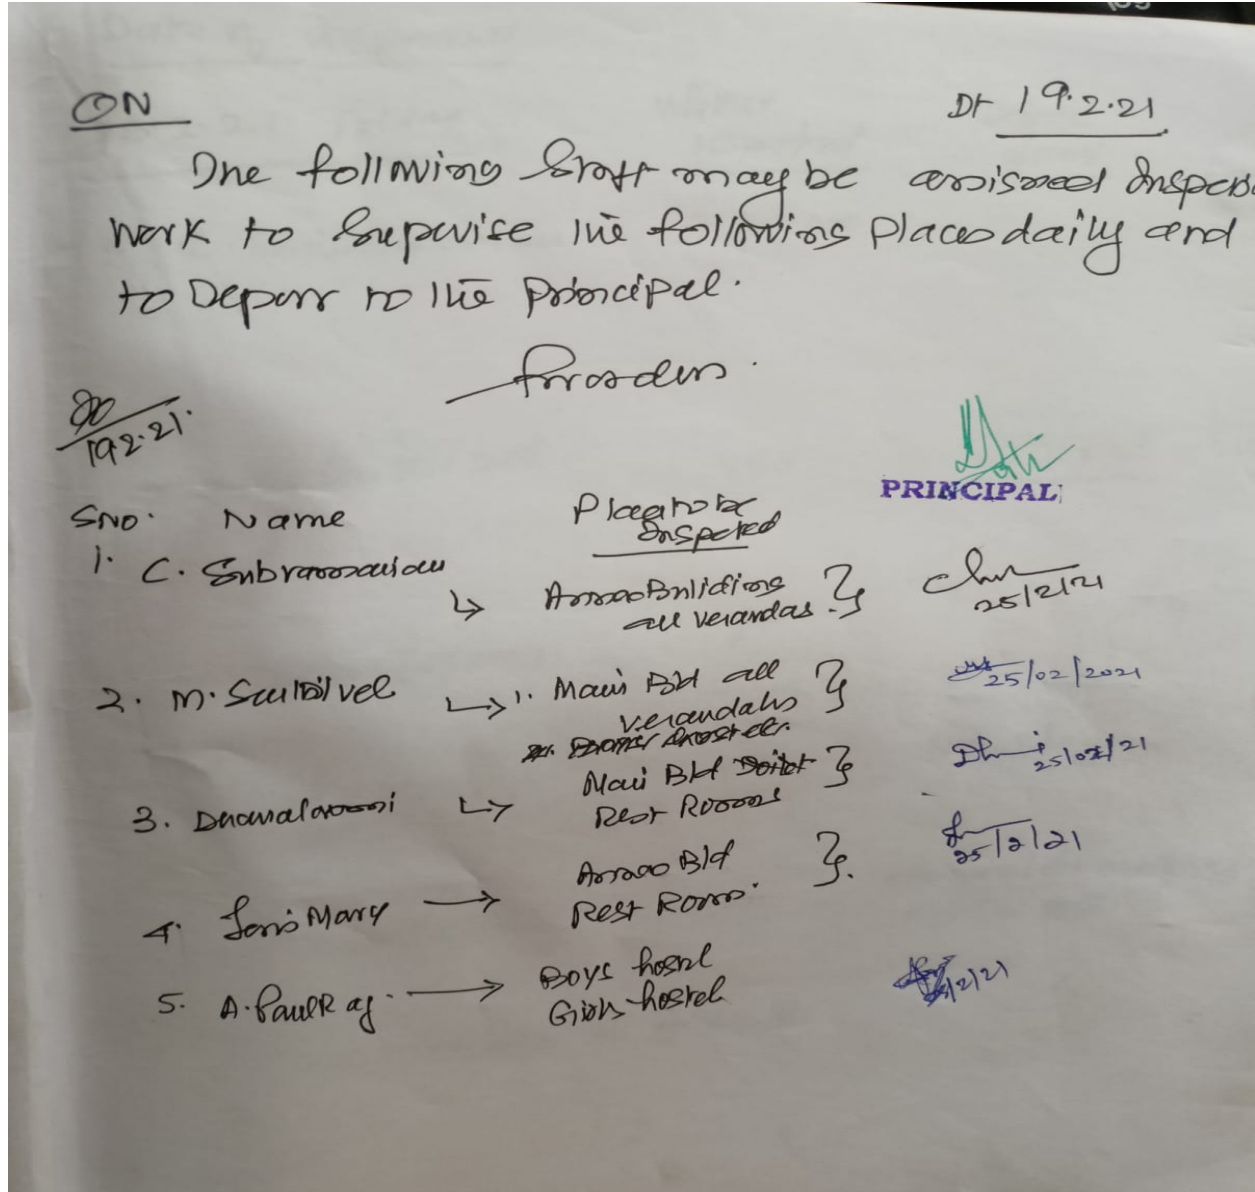 ON
Dt 19.2.21
The following Staff may be assigned Inspection
work to Supervise the following Places daily and
to Report to the Principal.
For orders.
19.2.21.
PRINCIPAL
SNO. Name
Place to be
Inspected
1. C. Subramanian
Annao Building
all verandas
25/2/21
2. M. Senthil vel
1. Main Bld all
verandahs
25/02/2021
3. Dhanalaxmi
Main Bld Toilet
Rest Rooms
25/02/21
4. Mary
Annao Bld
Rest Rooms
25/2/21
5. A. Paul Raj
Boys hostel
Girls hostel
/2/21